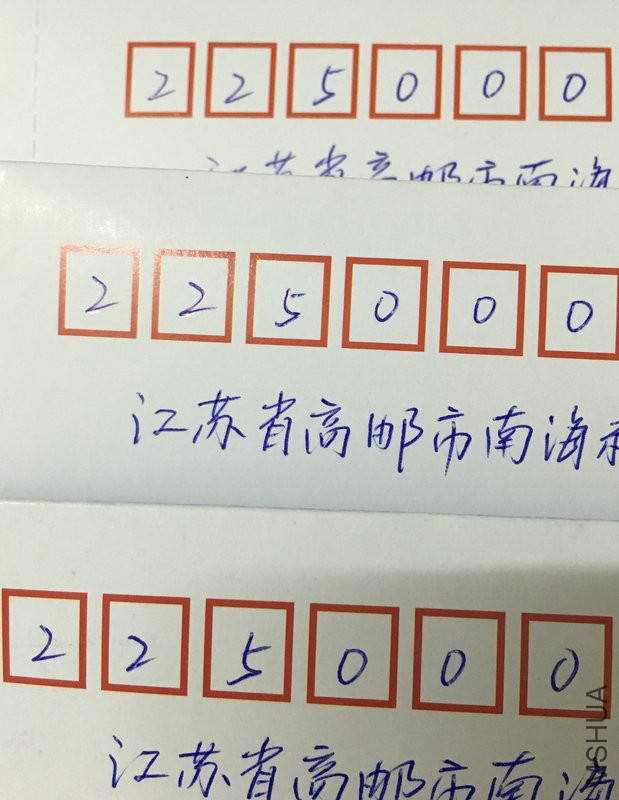 225000
江苏省高邮市南海
225000
江苏省高邮市南海
225000
江苏省高邮市南海
SHUA